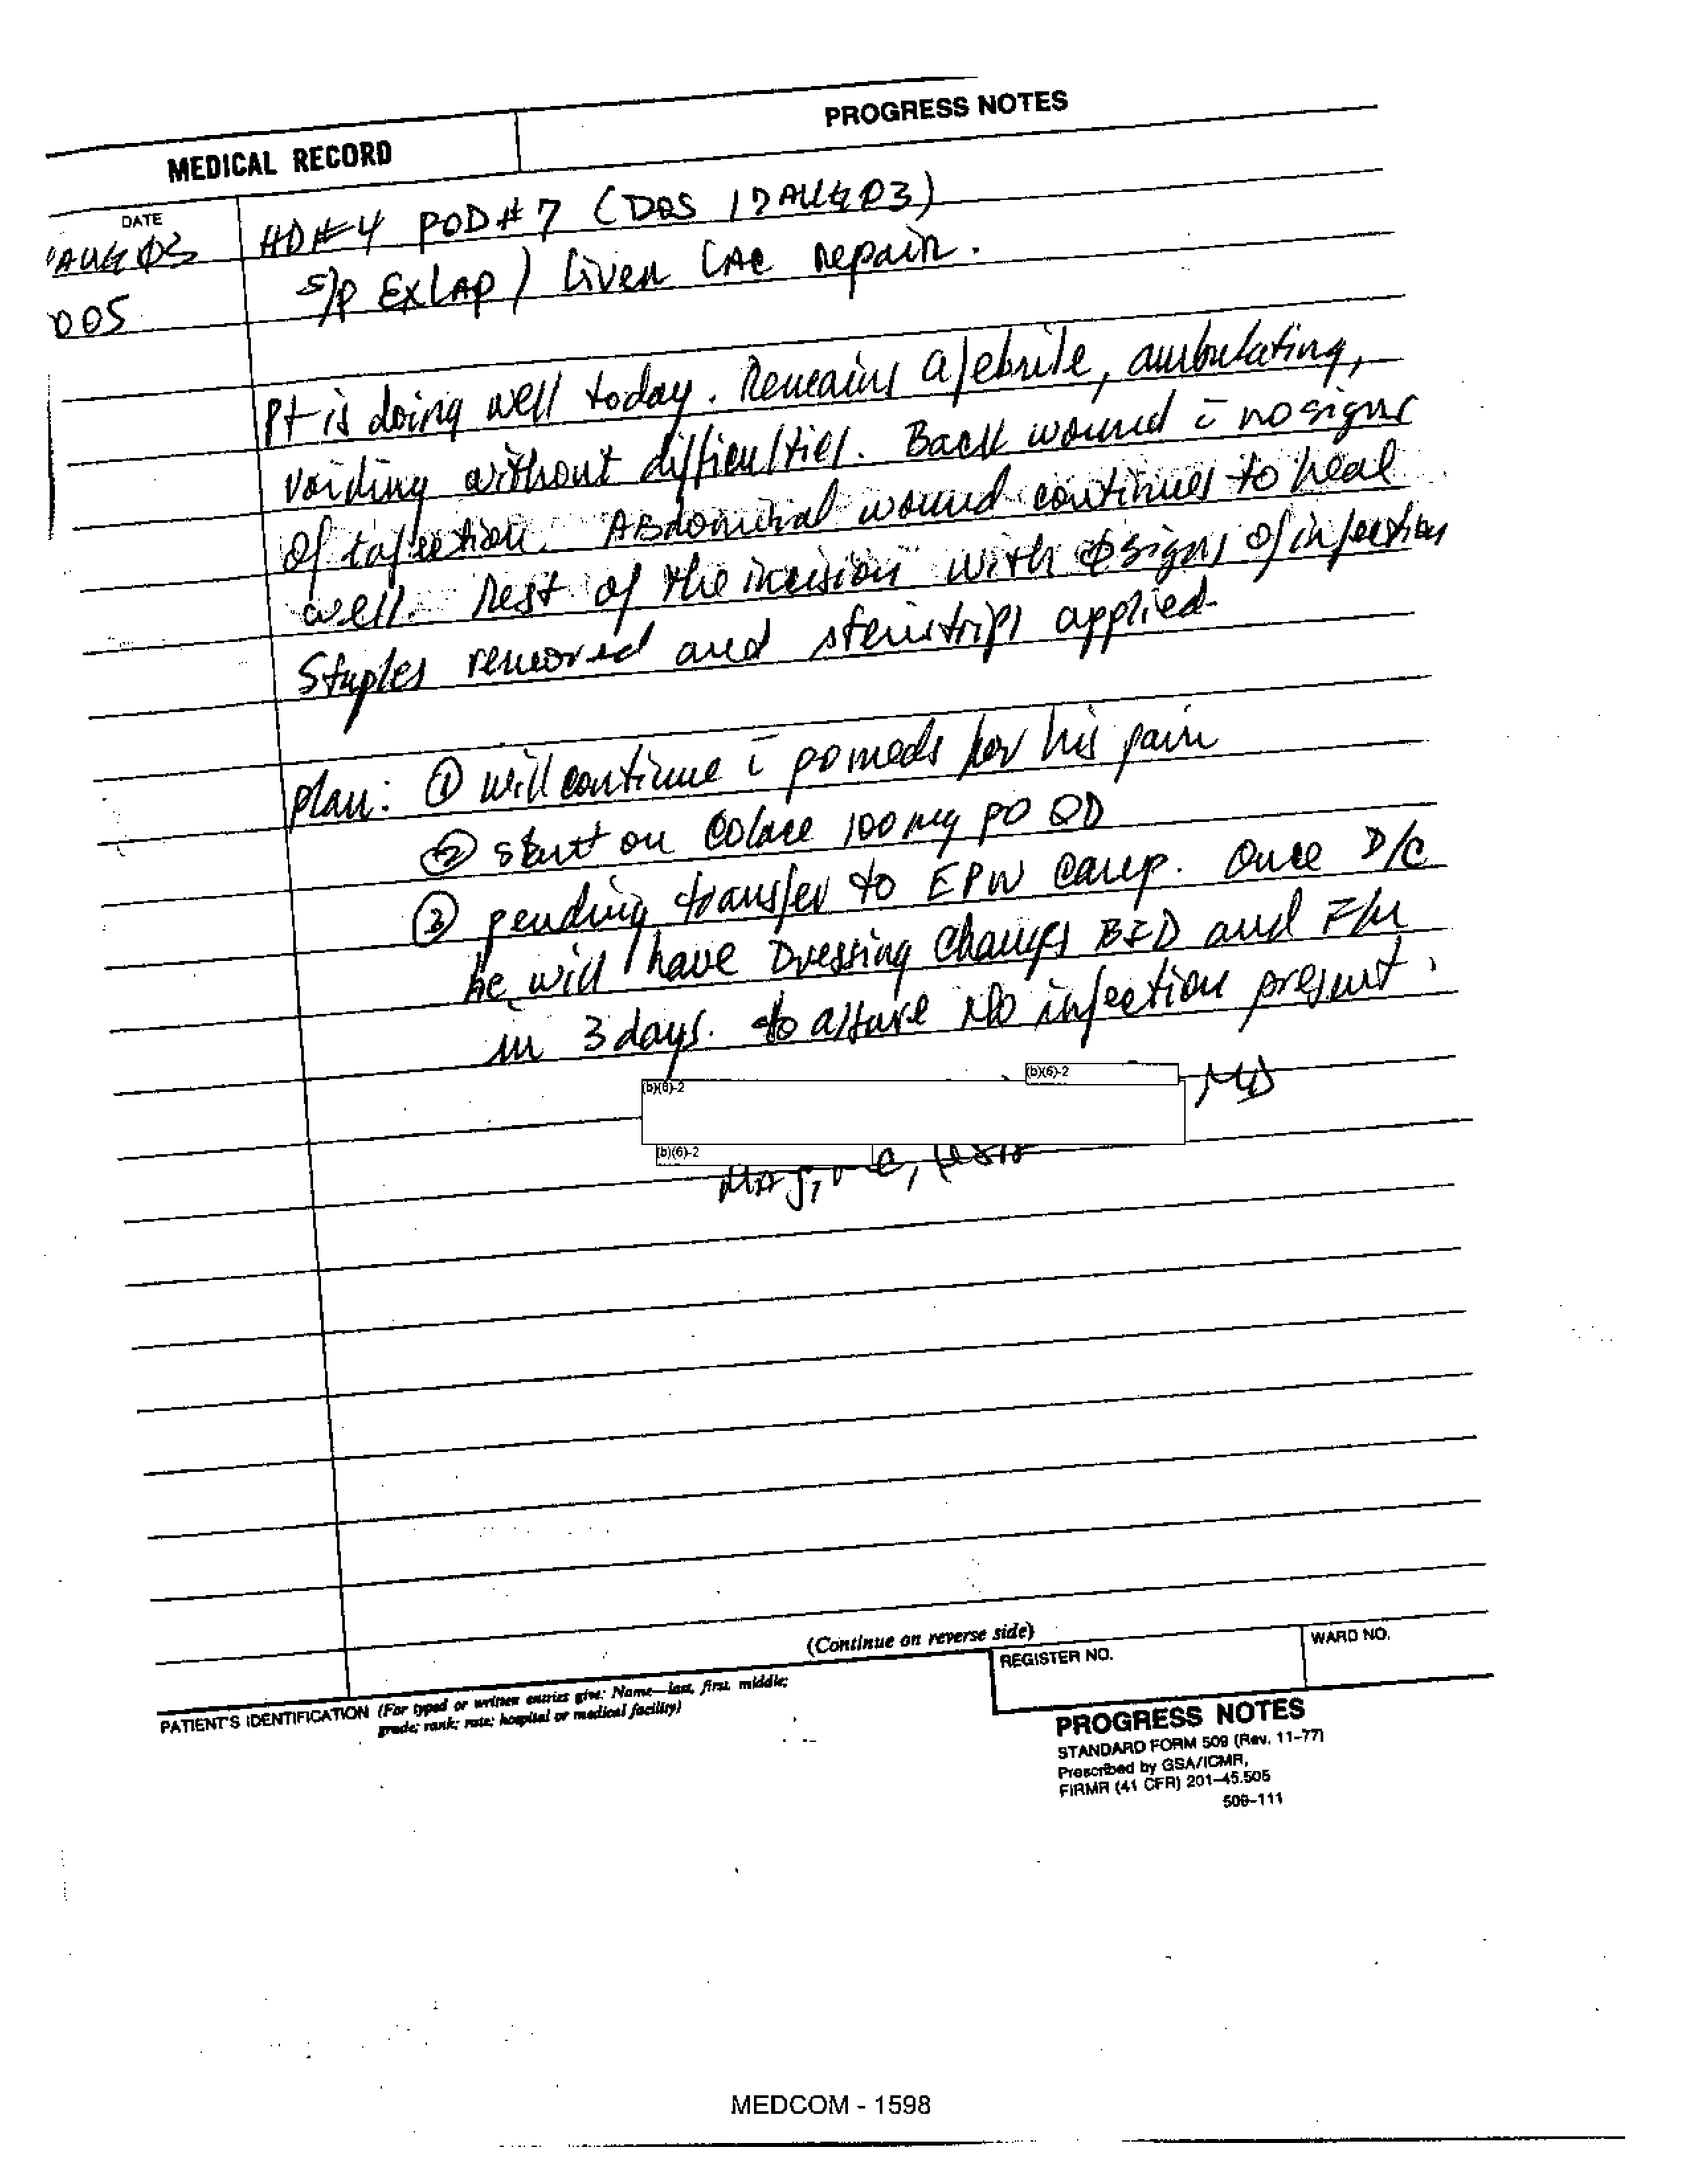 PROGRESS NOTES
MEDICAL RECORD
DATE
AUG 03
005
HD#4 POD#7 (DOS 17 AUG 03)
S/P EXLAP / Liver LAC repair.
Pt is doing well today. Remains afebrile, ambulating,
voiding without difficulties. Back wound c̄ no signs
of infection. Abdominal wound continues to heal
well. Rest of the incision with ∅ signs of infection
Staples removed and steristrips applied.
plan: ① will continue c̄ po meds for his pain
② start on Colace 100 mg PO QD
③ pending transfer to EPW Camp. Once D/C
he will have Dressing Changes BID and F/u
in 3 days. to assure no infection present.
(b)(6)-2
(b)(6)-2
MD
(b)(6)-2
MAJ,
(Continue on reverse side)
PATIENT'S IDENTIFICATION (For typed or written entries give: Name—last, first, middle;
grade; rank; rate; hospital or medical facility)
REGISTER NO.
WARD NO.
PROGRESS NOTES
STANDARD FORM 509 (Rev. 11-77)
Prescribed by GSA/ICMR,
FIRMR (41 CFR) 201-45.505
509-111
MEDCOM - 1598